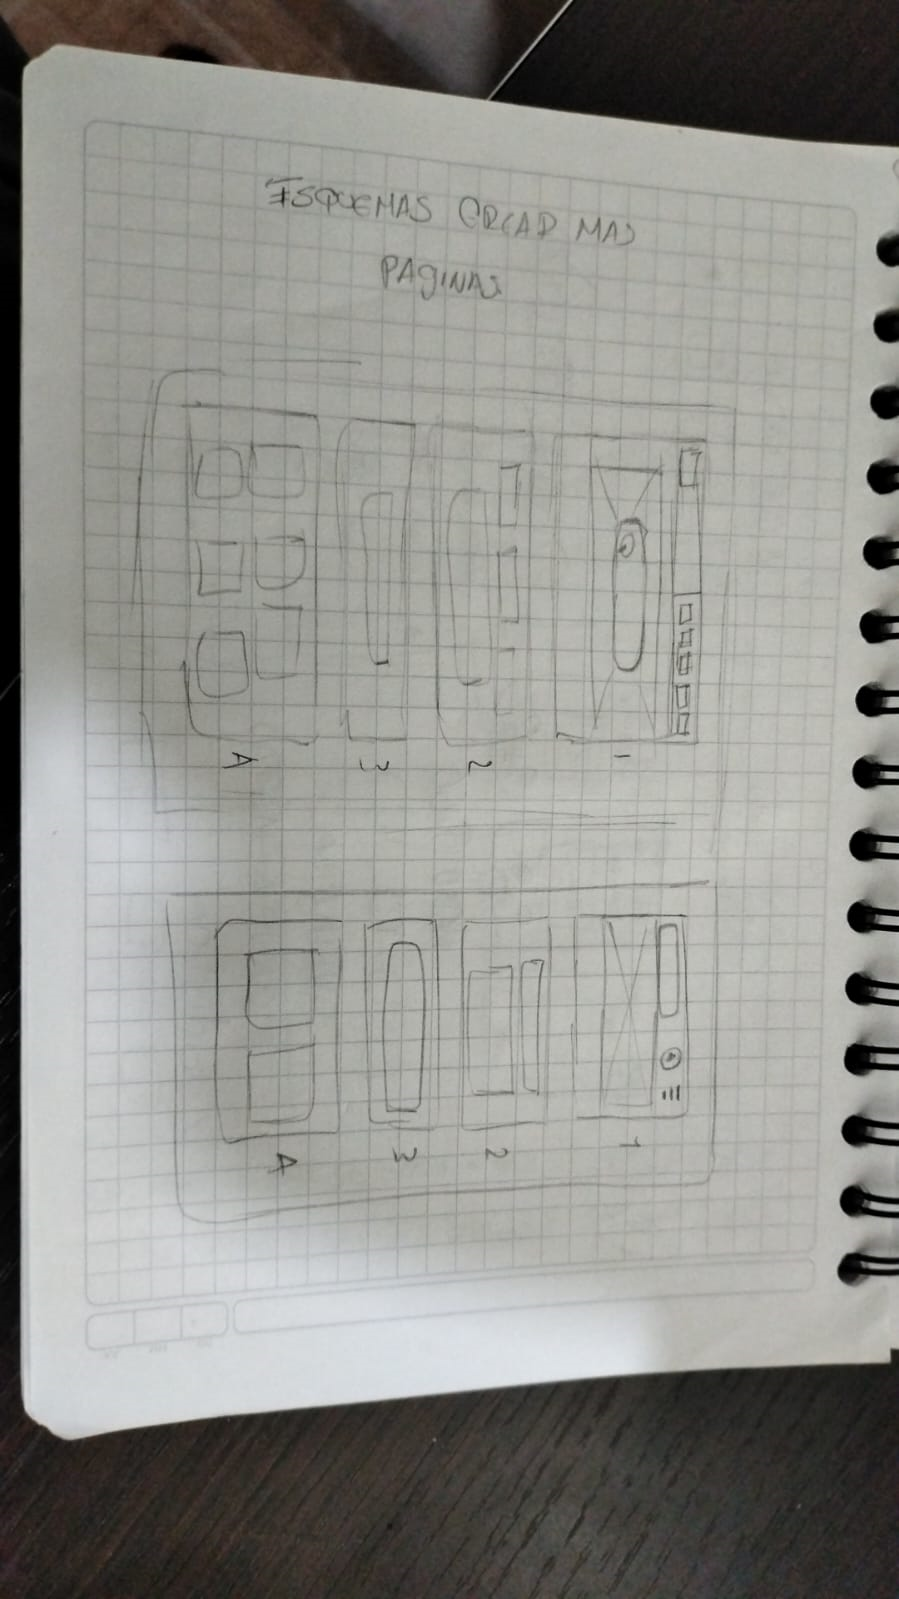 ESQUEMAS CREAR MAS
PAGINAS
1
2
3
A
1
2
3
A